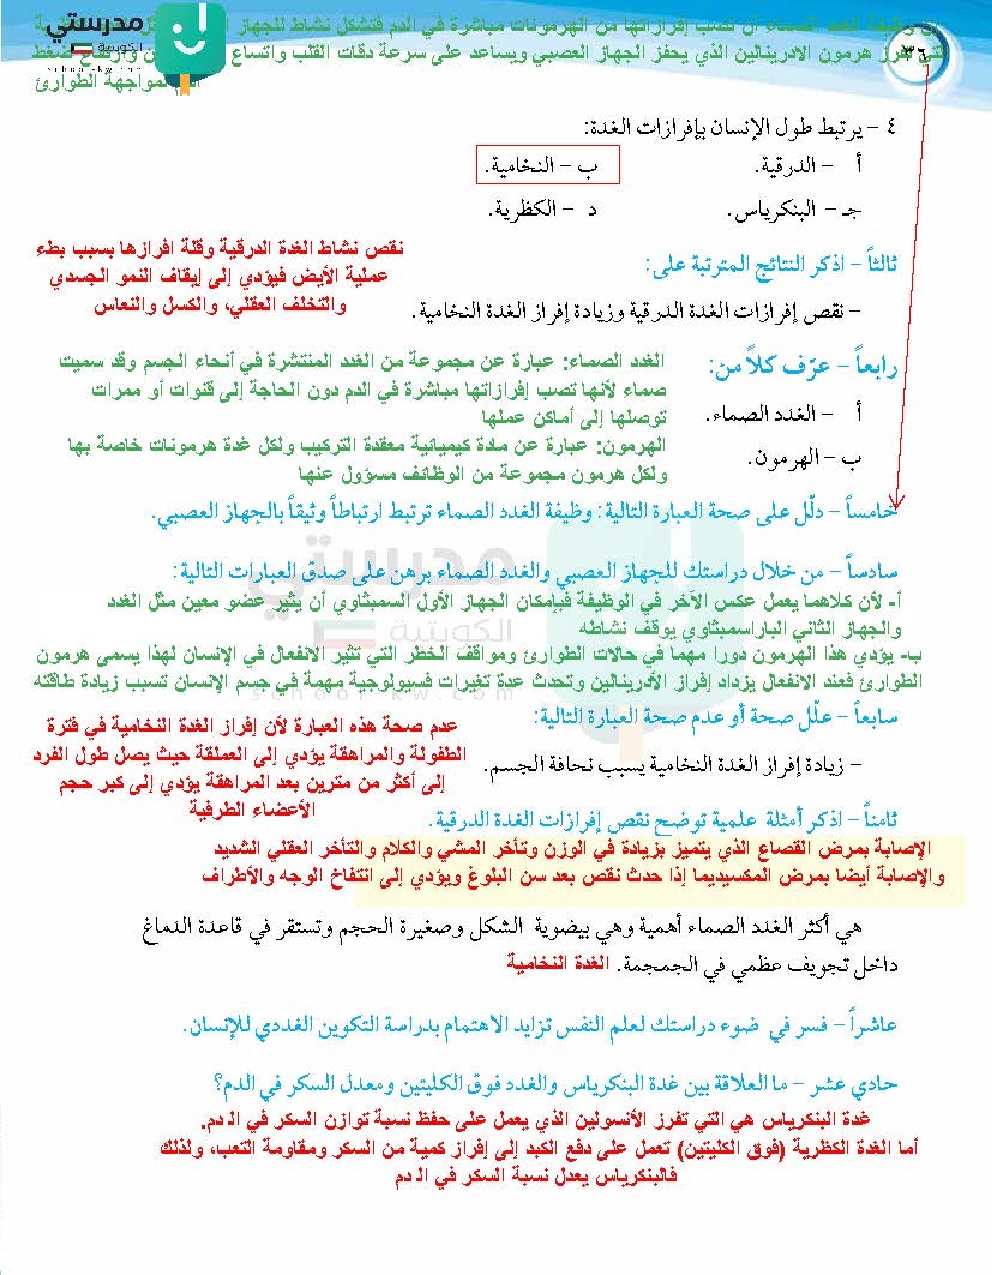 مدرستي
الكويتية
school-kw.com
٣٦
الصماء أن تصب إفرازاتها من الهرمونات مباشرة في الدم فتشكل نشاط للجهاز
تفرز هرمون الادرينالين الذي يحفز الجهاز العصبي ويساعد على سرعة دقات القلب واتساع وارتفاع ضغط
لمواجهة الطوارئ
٤ – يرتبط طول الإنسان بإفرازات الغدة:
أ – الدرقية. ب – النخامية.
جـ – البنكرياس. د – الكظرية.
نقص نشاط الغدة الدرقية وقلة افرازها بسبب بطء
عملية الأيض فيؤدي إلى إيقاف النمو الجسدي
والتخلف العقلي، والكسل والنعاس
ثالثاً – اذكر النتائج المترتبة على:
– نقص إفرازات الغدة الدرقية وزيادة إفراز الغدة النخامية.
رابعاً – عرّف كلاً من:
أ – الغدد الصماء.
ب – الهرمون.
الغدد الصماء: عبارة عن مجموعة من الغدد المنتشرة في أنحاء الجسم وقد سميت
صماء لأنها تصب إفرازاتها مباشرة في الدم دون الحاجة إلى قنوات أو ممرات
توصلها إلى أماكن عملها
الهرمون: عبارة عن مادة كيميائية معقدة التركيب ولكل غدة هرمونات خاصة بها
ولكل هرمون مجموعة من الوظائف مسؤول عنها
خامساً – دلّل على صحة العبارة التالية: وظيفة الغدد الصماء ترتبط ارتباطاً وثيقاً بالجهاز العصبي.
سادساً – من خلال دراستك للجهاز العصبي والغدد الصماء برهن على صدق العبارات التالية:
أ- لأن كلاهما يعمل عكس الآخر في الوظيفة فبإمكان الجهاز الأول السمبثاوي أن يثير عضو معين مثل الغدد
والجهاز الثاني الباراسمبثاوي يوقف نشاطه
ب- يؤدي هذا الهرمون دورا مهما في حالات الطوارئ ومواقف الخطر التي تثير الانفعال في الإنسان لهذا يسمى هرمون
الطوارئ فعند الانفعال يزداد إفراز الأدرينالين وتحدث عدة تغيرات فسيولوجية مهمة في جسم الإنسان تسبب زيادة طاقته
مدرستي
الكويتية
school-kw.com
سابعاً – علّل صحة أو عدم صحة العبارة التالية:
– زيادة إفراز الغدة النخامية يسبب نحافة الجسم.
عدم صحة هذه العبارة لأن إفراز الغدة النخامية في فترة
الطفولة والمراهقة يؤدي إلى العملقة حيث يصل طول الفرد
إلى أكثر من مترين بعد المراهقة يؤدي إلى كبر حجم
الأعضاء الطرفية
ثامناً – اذكر أمثلة علمية توضح نقص إفرازات الغدة الدرقية.
الإصابة بمرض القصاع الذي يتميز بزيادة في الوزن وتأخر المشي والكلام والتأخر العقلي الشديد
والإصابة أيضا بمرض المكسيديما إذا حدث نقص بعد سن البلوغ ويؤدي إلى انتفاخ الوجه والأطراف
هي أكثر الغدد الصماء أهمية وهي بيضوية الشكل وصغيرة الحجم وتستقر في قاعدة الدماغ
داخل تجويف عظمي في الجمجمة. الغدة النخامية
عاشراً – فسر في ضوء دراستك لعلم النفس تزايد الاهتمام بدراسة التكوين الغددي للإنسان.
حادي عشر – ما العلاقة بين غدة البنكرياس والغدد فوق الكليتين ومعدل السكر في الدم؟
غدة البنكرياس هي التي تفرز الأنسولين الذي يعمل على حفظ نسبة توازن السكر في الـ دم.
أما الغدة الكظرية (فوق الكليتين) تعمل على دفع الكبد إلى إفراز كمية من السكر ومقاومة التعب، ولذلك
فالبنكرياس يعدل نسبة السكر في الـ دم